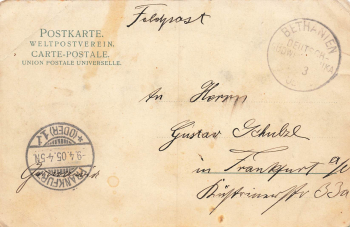 Feldpost
POSTKARTE.
WELTPOSTVEREIN.
CARTE-POSTALE.
UNION POSTALE UNIVERSELLE.
BETHANIEN
DEUTSCH-
3
An Herrn
Gustav Schulze
in Frankfurt a/O
Küstrinerstr 33a
FRANKFURT
*(ODER)1.
-9.4.05.4-5N.